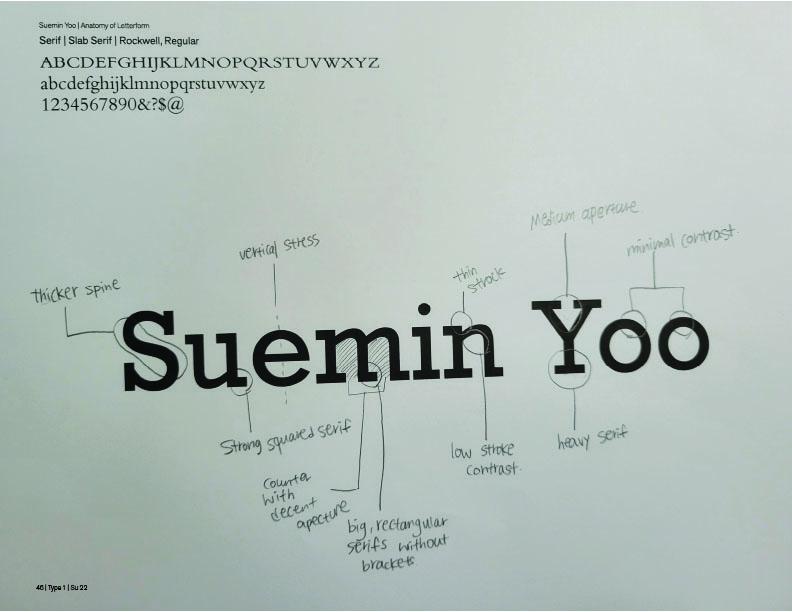 Suemin Yoo | Anatomy of Letterform
Serif | Slab Serif | Rockwell, Regular
ABCDEFGHIJKLMNOPQRSTUVWXYZ
abcdefghijklmnopqrstuvwxyz
1234567890&?$@
Medium aperture.
vertical stress
minimal contrast.
thin
strock
thicker spine
Suemin Yoo
Strong squared serif
low stroke
contrast.
heavy serif
counter
with
decent
aperture
big, rectangular
serifs without
brackets.
46 | Type 1 | Su 22